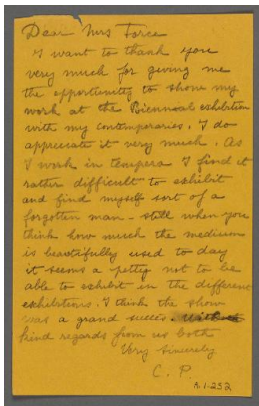 Dear Mrs Force
I want to thank you
very much for giving me
the opportunity to show my
work at the Biennoal exhibition
with my contemporaries. I do
appreciate it very much. As
I work in tempera I find it
rather difficult to exhibit
and find myself sort of a
forgotten man - still when you
think how much the medium
is beautifully used to day
it seems a petty not to be
able to exhibit in the difference
exhibitions. I think the show
was a grand success.
kind regards from us both
Very sincerely
C. P.
A.1.252